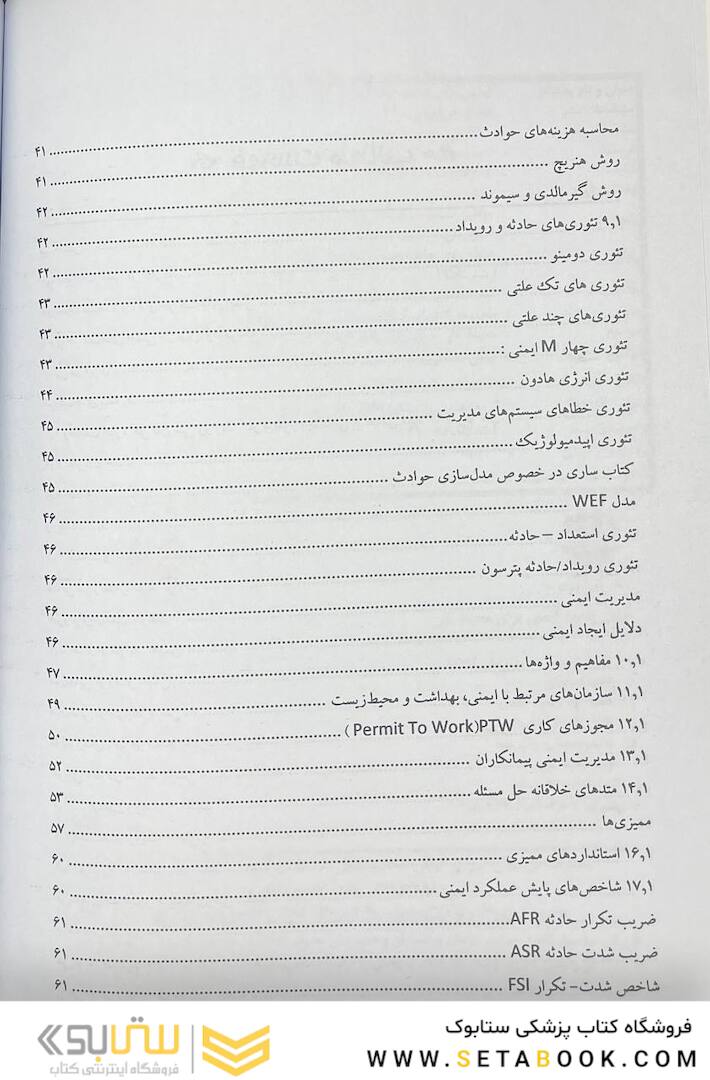 محاسبه هزینه‌های حوادث................................................................ ۴۱
روش هنریچ ................................................................ ۴۱
روش گیرمالدی و سیموند ................................................................ ۴۲
۹,۱ تئوری‌های حادثه و رویداد................................................................ ۴۲
تئوری دومینو ................................................................ ۴۲
تئوری های تک علتی ................................................................ ۴۳
تئوری‌های چند علتی ................................................................ ۴۳
تئوری چهار M ایمنی :................................................................ ۴۳
تئوری انرژی هادون ................................................................ ۴۴
تئوری خطاهای سیستم‌های مدیریت ................................................................ ۴۵
تئوری اپیدمیولوژیک................................................................ ۴۵
کتاب ساری در خصوص مدل‌سازی حوادث ................................................................ ۴۵
مدل WEF ................................................................ ۴۶
تئوری استعداد –حادثه................................................................ ۴۶
تئوری رویداد/حادثه پترسون ................................................................ ۴۶
مدیریت ایمنی ................................................................ ۴۶
دلایل ایجاد ایمنی................................................................ ۴۶
۱۰,۱ مفاهیم و واژه‌ها................................................................ ۴۷
۱۱,۱ سازمان‌های مرتبط با ایمنی، بهداشت و محیط‌زیست ................................................................ ۴۹
۱۲,۱ مجوزهای کاری PTW(Permit To Work )................................................................ ۵۰
۱۳,۱ مدیریت ایمنی پیمانکاران ................................................................ ۵۲
۱۴,۱ متدهای خلاقانه حل مسئله................................................................ ۵۳
ممیزی‌ها ................................................................ ۵۷
۱۶,۱ استانداردهای ممیزی ................................................................ ۶۰
۱۷,۱ شاخص‌های پایش عملکرد ایمنی................................................................ ۶۰
ضریب تکرار حادثه AFR................................................................ ۶۱
ضریب شدت حادثه ASR ................................................................ ۶۱
شاخص شدت- تکرار FSI ................................................................ ۶۱
فروشگاه کتاب پزشکی ستابوک
WWW.SETABOOK.COM
ستابوک
فروشگاه اینترنتی کتاب